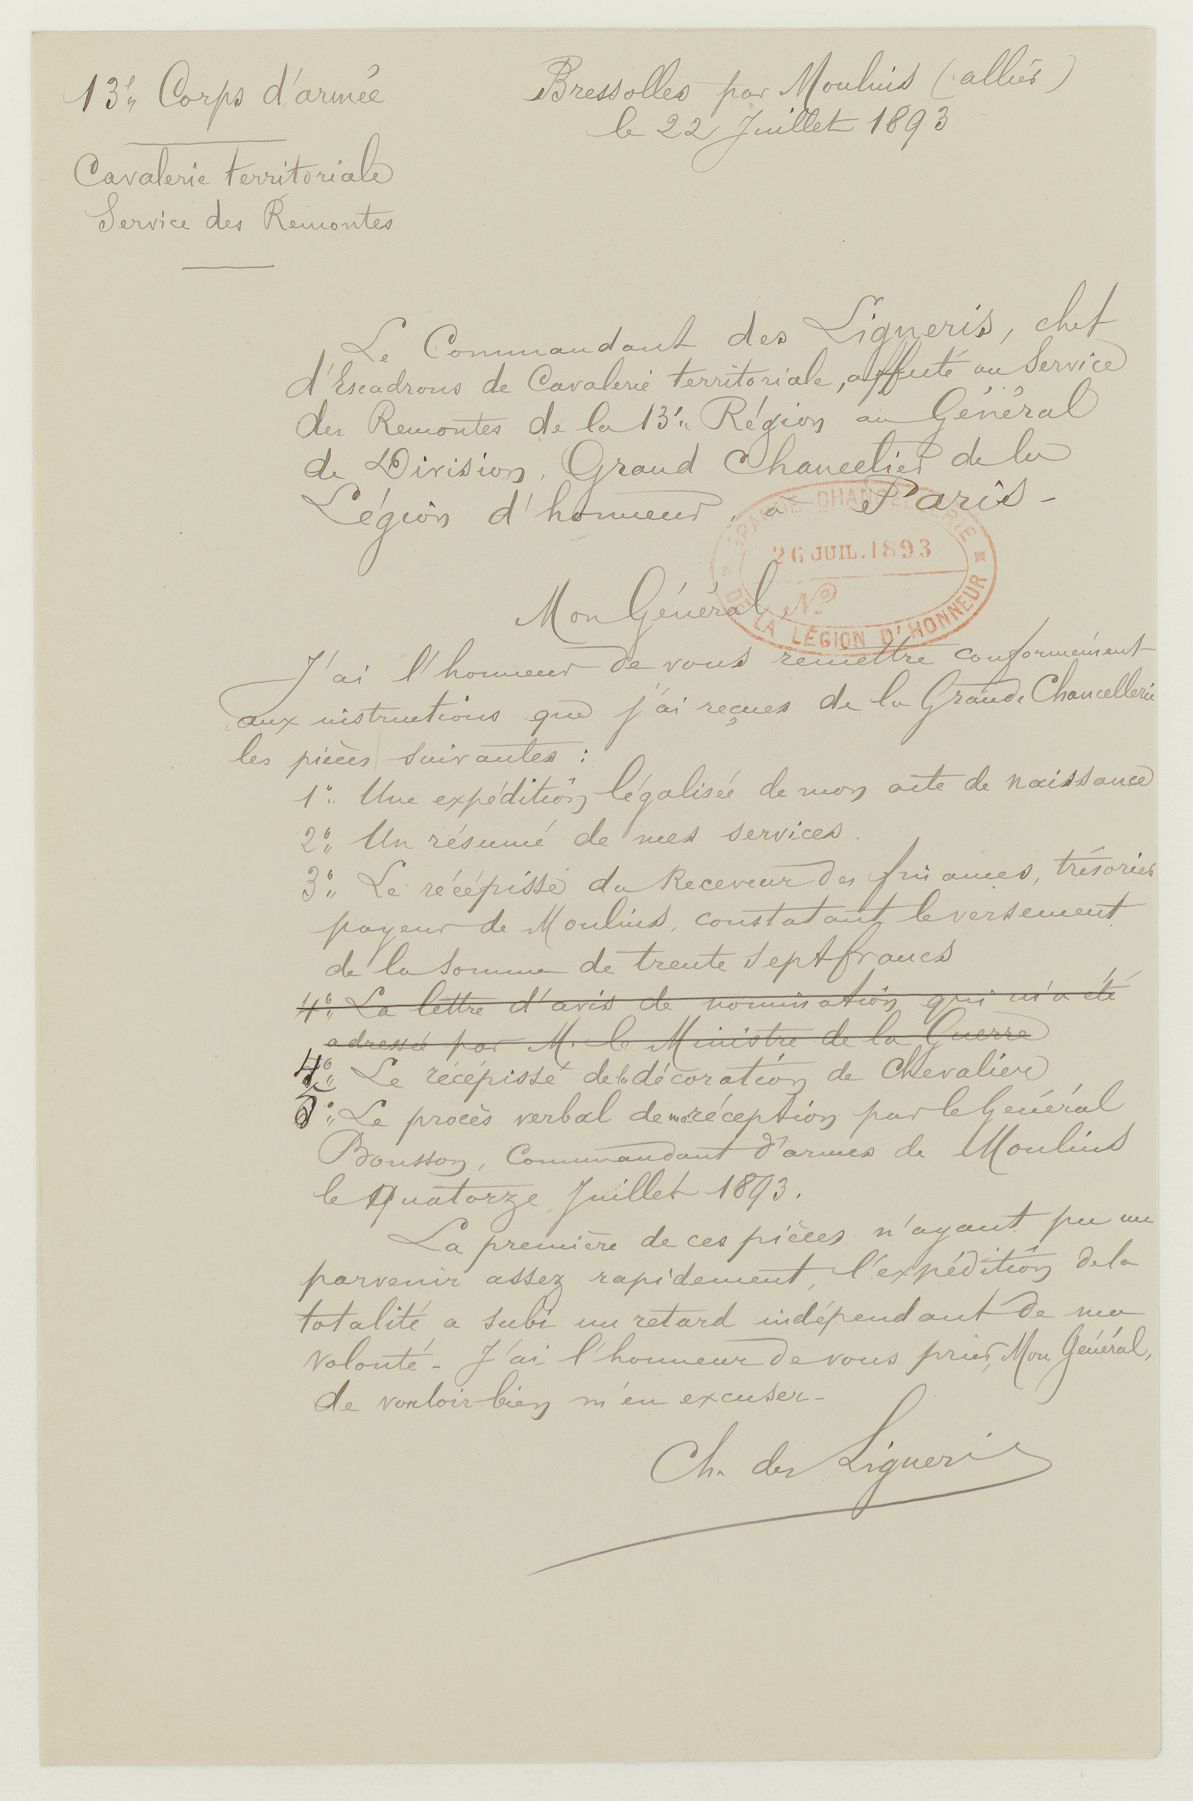 13e Corps d'armée
Bressolles par Moulins (allier)
le 22 Juillet 1893
Cavalerie territoriale
Service des Remontes
Le Commandant des Ligneris, chef
d'Escadrons de Cavalerie territoriale, affecté au Service
des Remontes de la 13e Région au Général
de Division, Grand Chancelier de la
Légion d'honneur, à Paris -
GRANDE CHANCELLERIE
26 JUIL. 1893
No
DE LA LÉGION D'HONNEUR
Mon Général,
J'ai l'honneur de vous remettre conformément
aux instructions que j'ai reçues de la Grande Chancellerie
les pièces suivantes :
1o Une expédition légalisée de mon acte de naissance
2o Un résumé de mes services.
3o Le récépissé du Receveur des finances, trésorier
payeur de Moulins, constatant le versement
de la somme de trente sept francs
4o La lettre d'avis de nomination qui m'a été
adressée par M. le Ministre de la Guerre
4o Le récépissé de la décoration de Chevalier
5o Le procès verbal de ma réception par le Général
Bousson, Commandant d'armes de Moulins
le Quatorze Juillet 1893.
La première de ces pièces n'ayant pu me
parvenir assez rapidement, l'expédition de la
totalité a subi un retard indépendant de ma
volonté - J'ai l'honneur de vous prier, Mon Général,
de vouloir bien m'en excuser -
Ch. des Ligneris